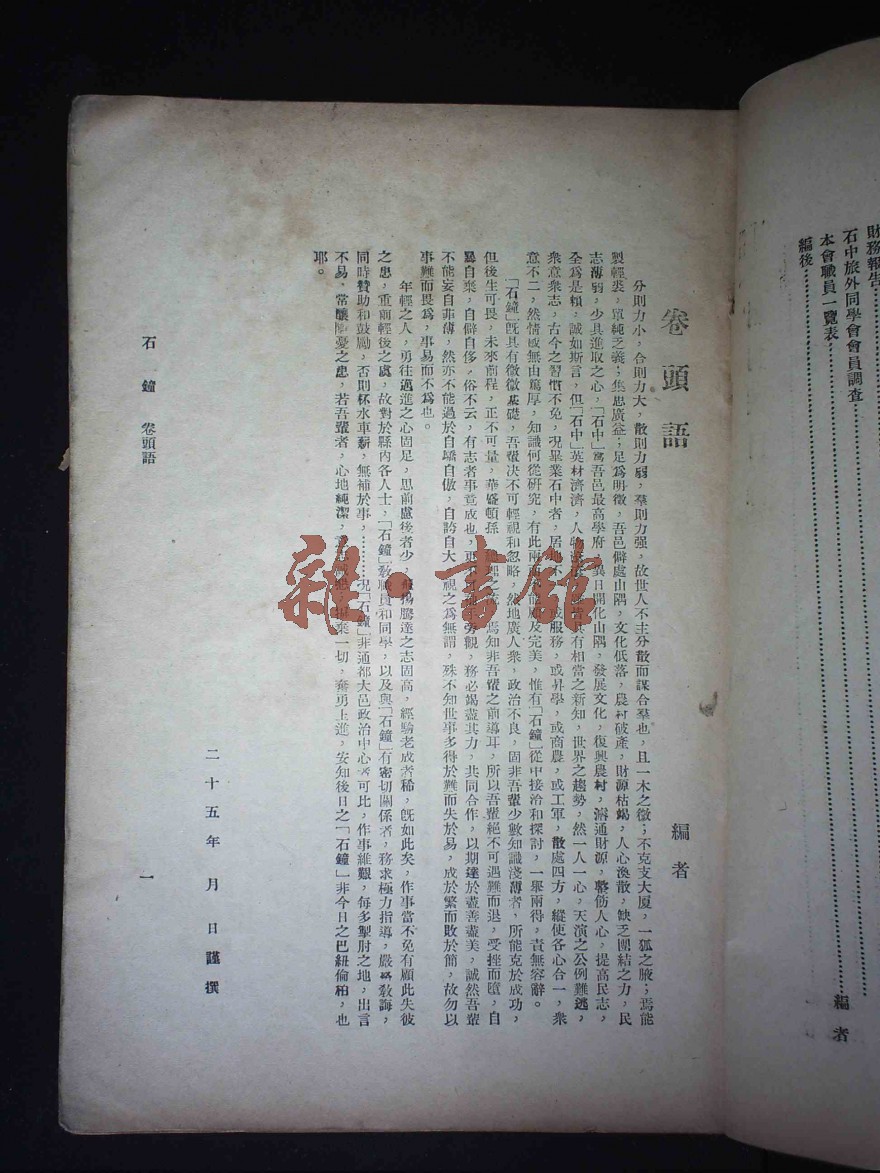 財務報告
石中旅外同學會會員調查
本會職員一覽表
編後
編者
卷頭語
編者
分則力小，合則力大，散則力弱，羣則力强，故世人不主分散而謀合羣也，且一木之微；不克支大厦，一狐之腋；焉能
製輕裘，單純之義；集思廣益；足爲明徵，吾邑僻處山隅，文化低落，農村破產，財源枯竭，人心渙散，缺乏團結之力，民
志薄弱，少具進取之心，「石中」寔吾邑最高學府，異日開化山隅，發展文化，復興農村，溝通財源，整飭人心，提高民志，
全爲是賴，誠如斯言，但「石中」英材濟濟，人物皆具有相當之新知，世界之趨勢，然一人一心，天演之公例難逃，
衆意衆志，古今之習慣不免，况畢業石中者，居地不或服務，或昇學，或商農，或工軍，散處四方，縱使各心合一，衆
意不二，然情或無由篤厚，知識何從研究，有此兩而不能及完美，惟有「石鐘」從中接洽和探討，一舉兩得，責無容辭。
「石鐘」旣具有微微基礎，吾輩决不可輕視和忽略，然地廣人衆，政治不良，固非吾輩少數知識淺薄者，所能克於成功，
但後生可畏，未來前程，正不可量，華盛頓孫理之焉知非吾輩之前導耳，所以吾輩絕不可遇難而退，受挫而墮，自
暴自棄，自僻自侈，俗不云，有志者事竟成也，更不旁觀，務必竭盡其力，共同合作，以期達於盡善盡美，誠然吾輩
不能妄自菲薄，然亦不能過於自驕自傲，自誇自大視之爲無謂，殊不知世事多得於難而失於易，成於繁而敗於簡，故勿以
事難而畏爲，事易而不爲也。
年輕之人，勇往邁進之心固足，思前慮後者少，飛揚騰達之志固高，經驗老成者稀，旣如此矣，作事當不免有顧此失彼
之患，重前輕後之處，故對於縣內各人士，「石鐘」敎職員和同學，以及與「石鐘」有密切關係者，務求極力指導，嚴敎誨，
同時贊助和鼓勵，否則杯水車薪，無補於事，………况「石鐘」非通都大邑政治中心者可比，作事維艱，每多掣肘之地，出言
不易，常釀隱憂之患，若吾輩者，心地純潔，棄一切，奮勇上進，安知後日之「石鐘」非今日之巴紐倫柏，也
耶。
二十五年　月　日謹撰
石鐘　卷頭語
一
雜·書館